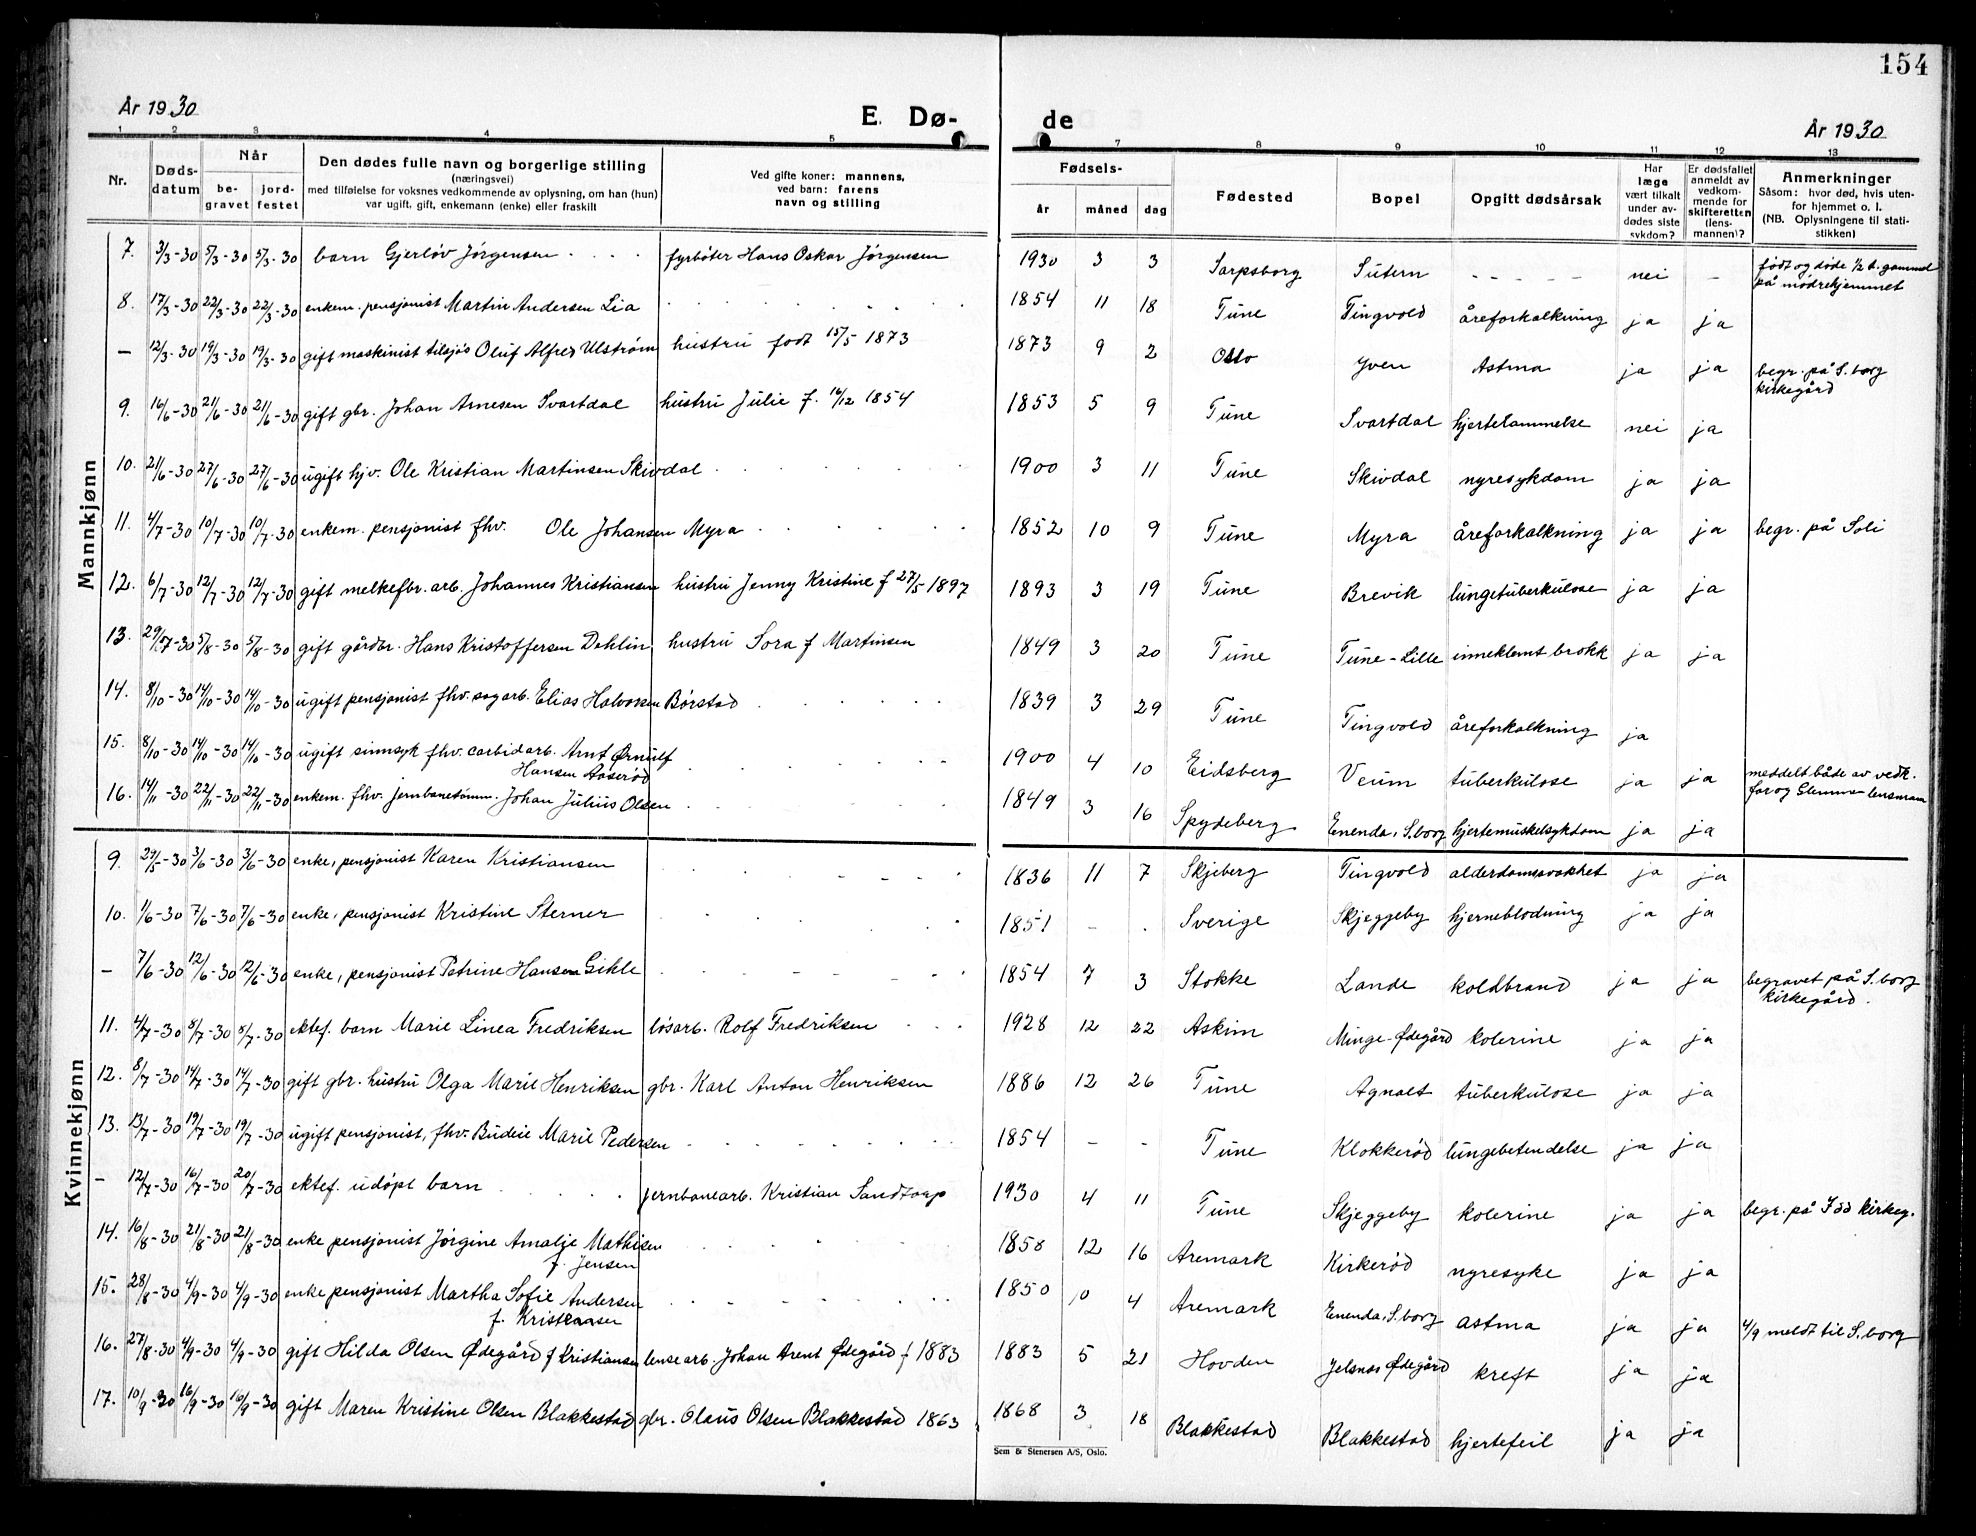 154
År 1930 E. Dø- de År 1930
1 2 3 4 5 7 8 9 10 11 12 13
Nr. Døds-datum Når be-gravet jord-festet Den dødes fulle navn og borgerlige stilling (næringsvei) med tilføielse for voksnes vedkommende av oplysning, om han (hun) var ugift, gift, enkemann (enke) eller fraskilt Ved gifte koner: mannens, ved barn: farens navn og stilling Fødsels- år måned dag Fødested Bopel Opgitt dødsårsak Har læge vært tilkalt under av-dødes siste sykdom? Er dødsfallet anmeldt av vedkom-mende for skifteretten (lens-mannen)? Anmerkninger Såsom: hvor død, hvis uten-for hjemmet o. l. (NB. Oplysningene til stati-stikken)
Mannkjønn
7. 3/3-30 5/3-30 5/3-30 barn Gjerløv Jørgensen fyrbøter Hans Oskar Jørgensen 1930 3 3 Sarpsborg Sutern - - - - - nei - født og døde 1/2 t. gammel på mødrehjemmet
8. 17/3-30 22/3-30 22/3-30 enkem. pensjonist Martin Andersen Lia 1854 11 18 Tune Tingvold åreforkalkning ja ja
— 12/3-30 19/3-30 19/3-30 gift maskinist tilsjøs Oluf Alfred Ulstrøm hustru født 15/5 1873 1873 9 2 Oslo Yven Astma ja ja begr. på S.borg kirkegård
9. 16/6-30 21/6-30 21/6-30 gift gbr. Johan Arnesen Svartdal hustru Julie f. 14/12 1854 1853 5 9 Tune Svartdal hjertelammelse nei ja
10. 21/6-30 27/6-30 27/6-30 ugift hjv. Ole Kristian Martinsen Skivdal 1900 3 11 Tune Skivdal nyresykdom ja ja
11. 4/7-30 10/7-30 10/7-30 enkem. pensjonist fhv. Ole Johansen Myra 1852 10 9 Tune Myra åreforkalkning ja ja begr. på Soli
12. 6/7-30 12/7-30 12/7-30 gift melkefbr. arb. Johannes Kristiansen hustru Jenny Kristine f 27/5 1897 1893 3 19 Tune Brevik lungetuberkulose ja ja
13. 29/7-30 5/8-30 5/8-30 gift gårdbr. Hans Kristoffersen Dehlin hustru Sora f Martinsen 1849 3 20 Tune Tune-Lille inneklemt brokk ja ja
14. 8/10-30 14/10-30 14/10-30 ugift pensjonist fhv. sagarb. Elias Halvorsen Børstad 1839 3 29 Tune Tingvold åreforkalkning ja
15. 8/10-30 14/10-30 14/10-30 ugift sinnsyk fhv. carbidarb. Arnt Ørnulf Hansen Aaserød 1900 4 10 Eidsberg Veum tuberkulose ja ja meddelt både av vedk. far og Glemmen lensmann
16. 14/11-30 22/11-30 22/11-30 enkem. fhv. jernbanetømm. Johan Julius Olsen 1849 3 16 Spydeberg Enenda, S.borg hjertemuskelsykdom ja ja
Kvinnekjønn
9. 27/5-30 3/6-30 3/6-30 enke, pensjonist Karen Kristiansen 1836 11 7 Skjeberg Tingvold alderdomssvakhet ja ja
10. 1/6-30 7/6-30 7/6-30 enke, pensjonist Kristine Sterner 1851 - . Sverige Skjeggeby hjerneblødning ja ja
— 7/6-30 12/6-30 12/6-30 enke, pensjonist Petrine Hansen Gihle 1854 7 3 Stokke Lande koldbrand ja ja begravet på S.borg kirkegård.
11. 4/7-30 8/7-30 8/7-30 ektef. barn Marie Linea Fredriksen løsarb. Rolf Fredriksen 1928 12 22 Askim Minge-Ødegård kolerine ja ja
12. 8/7-30 14/7-30 14/7-30 gift gbr. hustru Olga Marie Henriksen gbr. Karl Anton Henriksen 1886 12 26 Tune Agnalt tuberkulose ja ja
13. 13/7-30 19/7-30 19/7-30 ugift pensjonist, fhv. Budeie Marie Pedersen 1854 - - Tune Klokkerød lungebetendelse ja ja
— 12/7-30 16/7-30 20/7-30 ektef. udøpt barn jernbanearb. Kristian Sandtorp 1930 4 11 Tune Skjeggeby kolerine ja ja begr. på Idd kirkeg.
14. 16/8-30 21/8-30 21/8-30 enke pensjonist Jørgine Amalie Mathisen f. Jensen 1858 12 16 Aremark Kirkerød nyresyke ja ja
15. 28/8-30 4/9-30 4/9-30 enke pensjonist Martha Sofie Andersen f. Kristiansen 1850 10 4 Aremark Enenda, S.borg astma ja ja 4/9 meldt til S.borg
16. 27/8-30 4/9-30 4/9-30 gift Hilda Olsen Ødegård f Kristiansen lensearb. Johan Arent Ødegård f 1883 1883 5 21 Hovden Jelsnes Ødegård kreft ja ja
17. 10/9-30 16/9-30 16/9-30 gift Maren Kristine Olsen Blakkestad gbr. Olaus Olsen Blakkestad 1863 1868 3 18 Blakkestad Blakkestad hjertefeil ja ja
Sem & Stenersen A/S, Oslo.